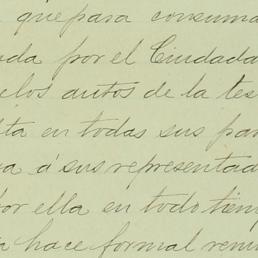 que para consuma
da por el Ciudada
los autos de la tes
ta en todas sus par
a á sus representad
por ella en todo tiem
hace formal renu